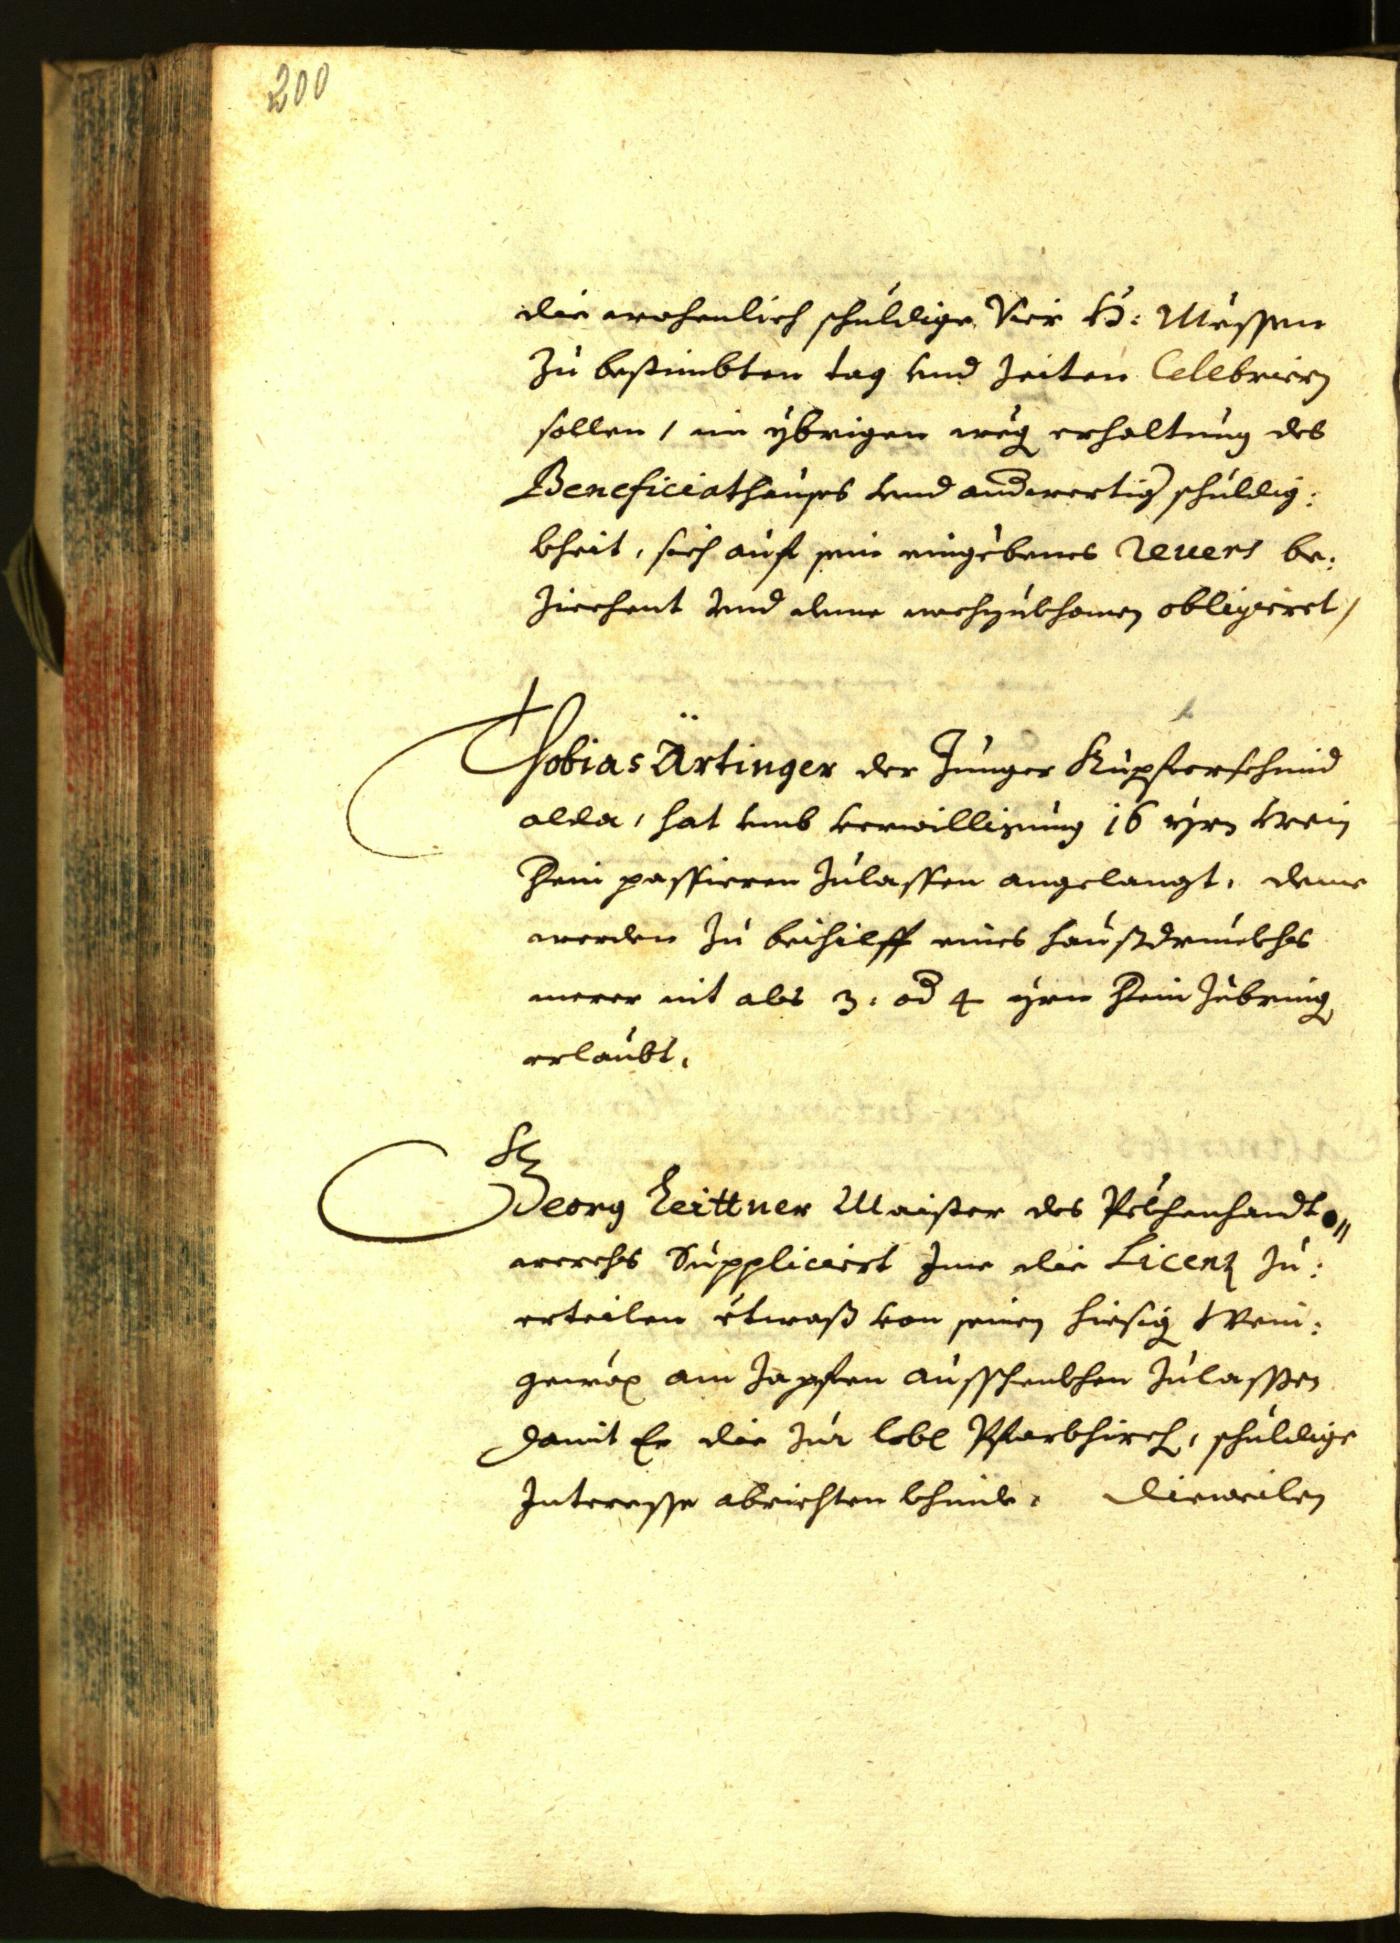 200
die wochenlich schuldige Vier H: Messen
zu bestimbten tag vnd zeiten Celebriern
sollen / im ybrigen weg erhaltung des
Beneficiathauses vnd anderwertig schuldig:
kheit, sich auf sein eingebenes Reuers be:
ziechent vnd deme nachzukhomen obligieret /
Thobias Ärtinger der Junger Kupferschmid
alda, hat vmb verwilligung 16 yrn Wein
herein passieren zulassen angelangt, deme
werden zu beihilff eines haußdrunckhs
merer nit als 3: od 4 yrn herein zubring
erlaubt,
Georg Zeittner Maister des Peckhenhandt
werchs Suppliciert Jme die Licenz zu:
erteilen etwaß von seinen hiesig Wein:
gewäx am Zapfen ausschenkhen zulassen
damit Er die zur lobl Pfarkhirch, schuldige
Interesse abrichten khinde, Dieweilen